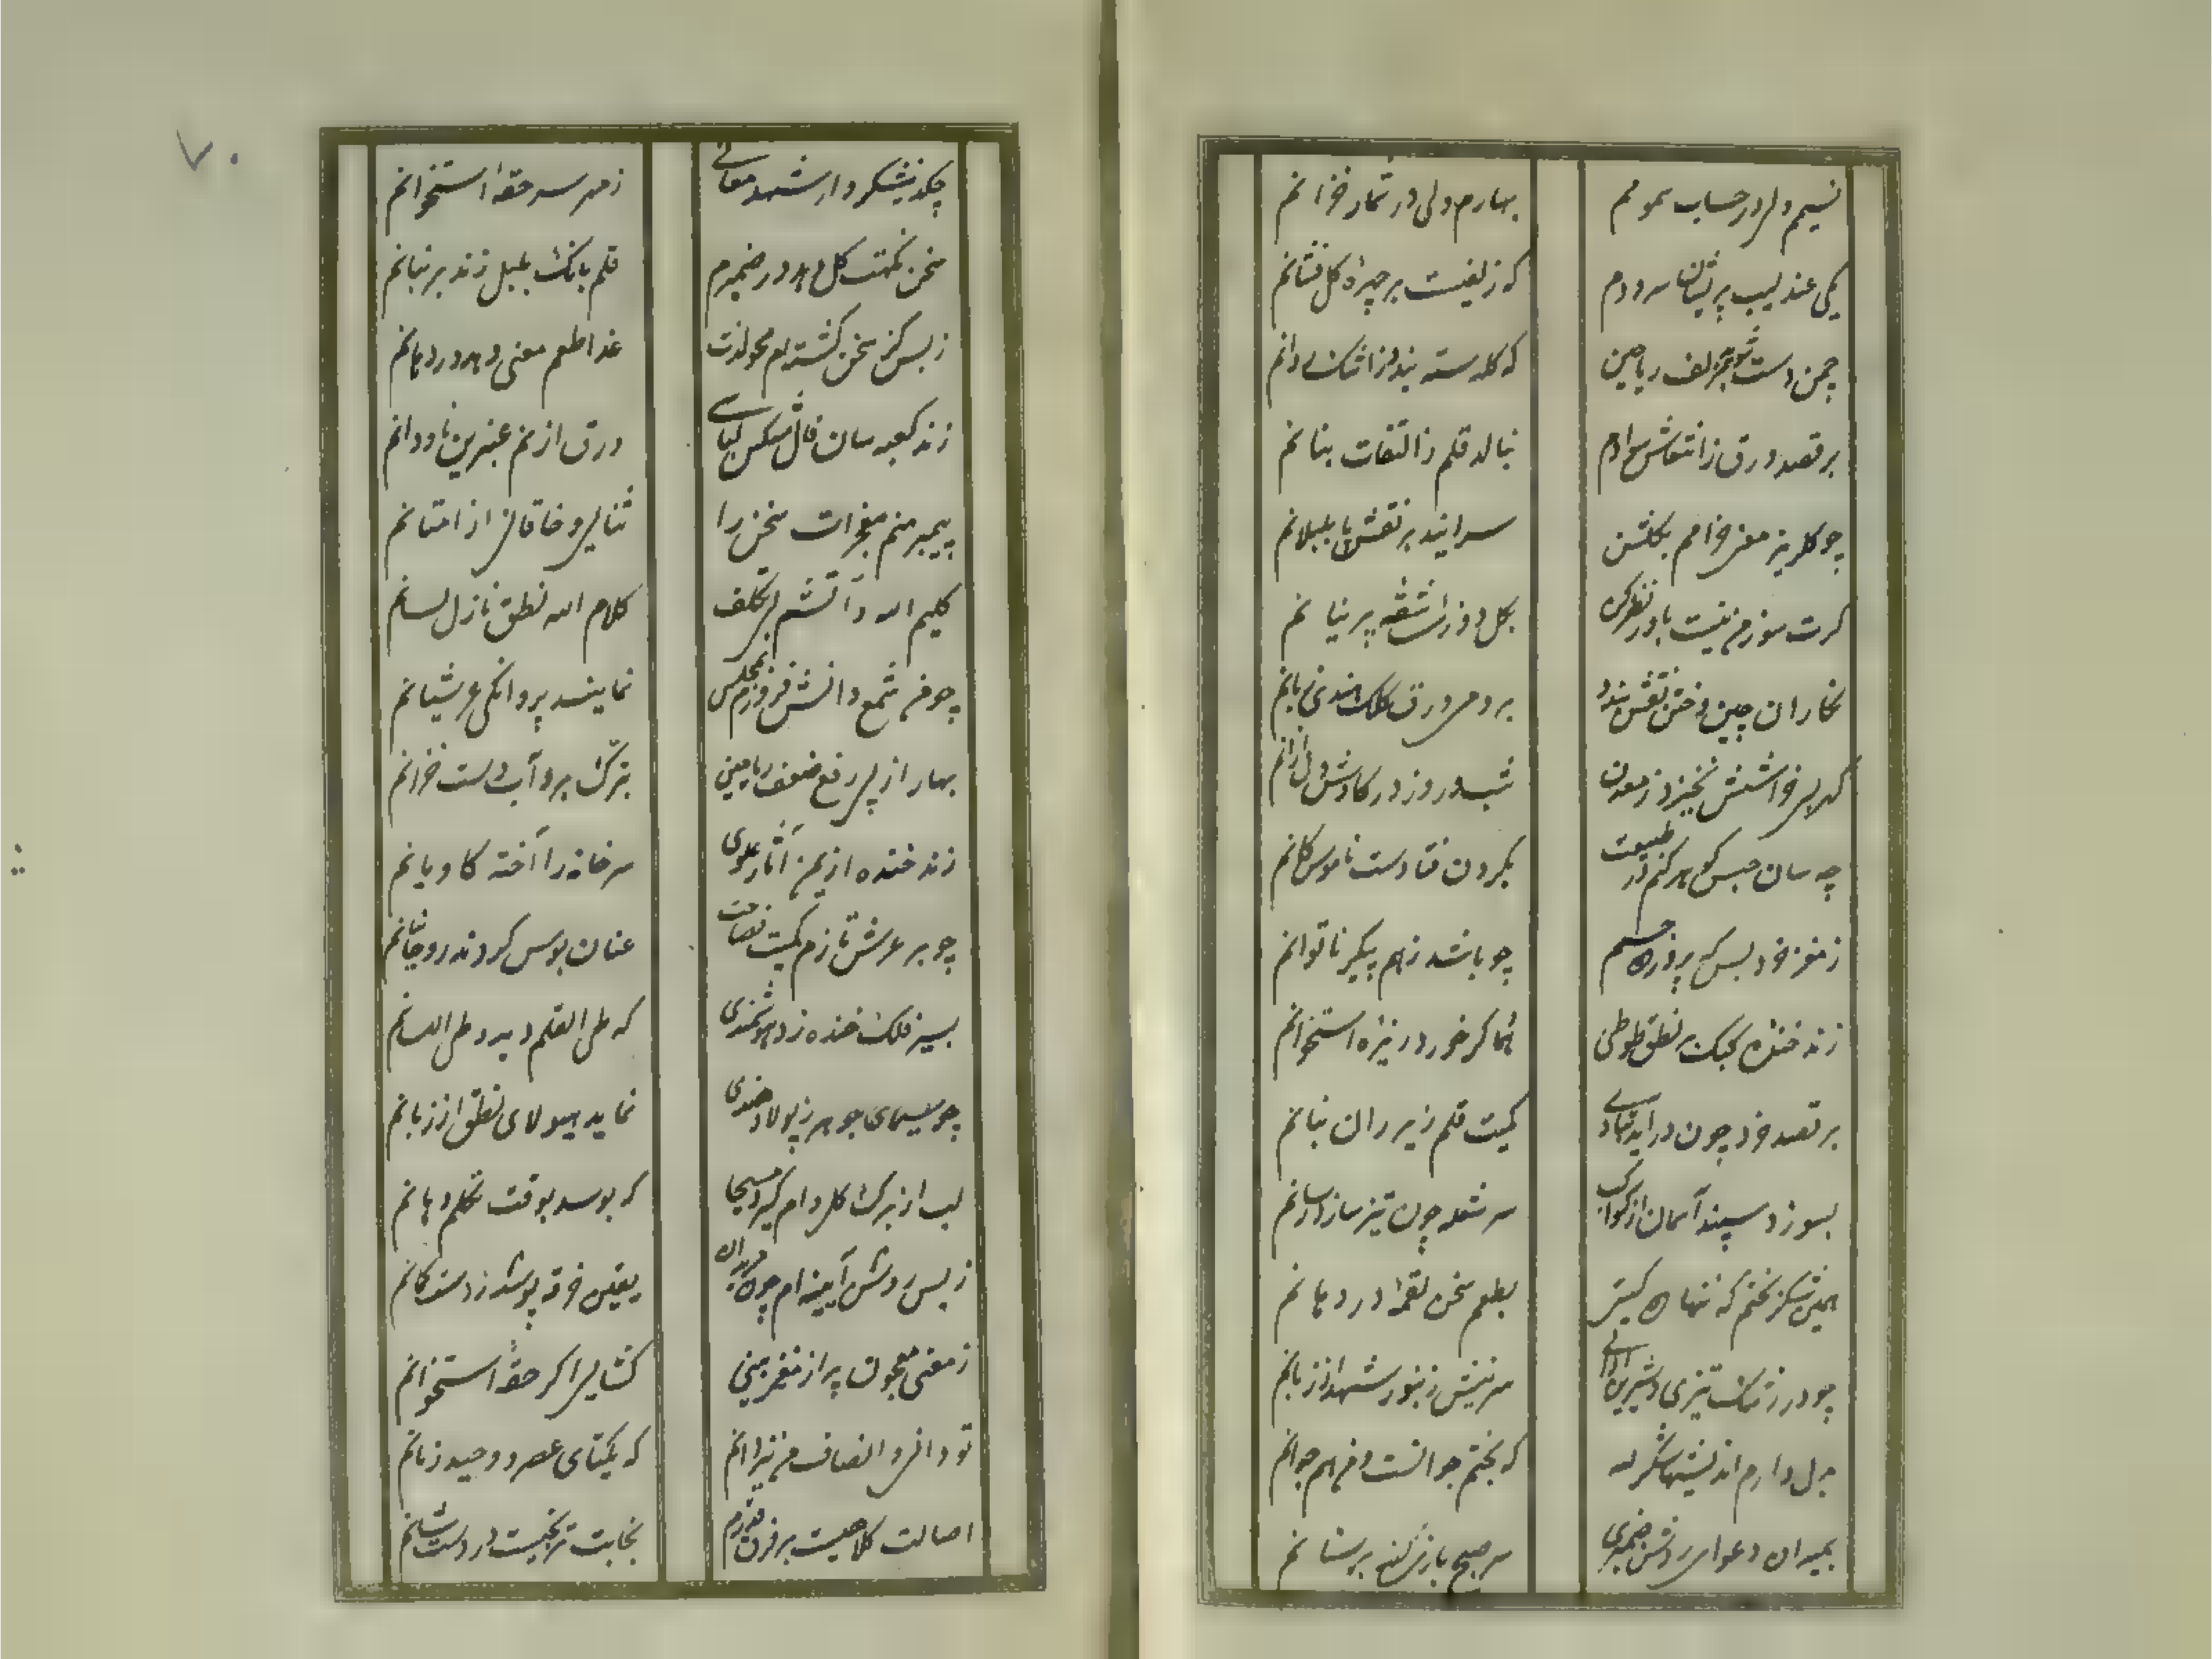 نسیم ولی در حساب سمومم
بهارم ولی در شمار خزانم
یکی عندلیب پریشان سرودم
که زلفیست بر چهره گل فشانم
چمن دست زلف ریاحین
که گلدسته بندد ز اشک روانم
برقصد ورق ز انتعاش سوادم
ببالد قلم ز التفات بنانم
چو گلریز معنی خرامم بگلشن
سرایند بر نقش پا بلبلانم
گرت سوزم نیست باور نظر کن
بگل دوز شقه پرنیانم
نگاران چین و ختن نقش بندد
بروی ورق کلک هندی زبانم
گهر بی خراشش نخیزد ز معدن
شب و روز در کاوش دل ازانم
چه سان حبس گوهر کنم در طبیعت
بگردن فتادست ناموس کانم
ز مغز خرد بس که پرورده جسمم
چو باشد زهم پیکر ناتوانم
زند خنده کبک بر نطق طوطی
هما گر خورد ریزه استخوانم
برقصد خرد چون درآید
کمیت قلم زیر ران بنانم
بسوزد سپند آسمان از کواکب
سر شعله چون تیز سازد سنانم
همین شکر بختم که تنها
بطعم سخن لقمه در دهانم
چو در رزمکه تیزی و شیرین
سر نیش زنبور شهد از زبانم
بدل دارم اندیشهها شکر لله
که بختم جوانست و من هم جوانم
بمیران دعوای روشن ضمیری
سر صبح بازی کند بر سنانم
چکد نیشکر وار شهد معانی
ز مهر سر حقه استخوانم
سخن نکهت گل دهد در ضمیرم
قلم بانگ بلبل زند بر بنانم
ز بس کز سخن گشته ام محو لذت
غذا طعم معنی دهد در دهانم
زند کعبه سان فال مشکین لباسی
ورق از نم عنبرین ناودانم
پیمبر منم معجزات سخن را
ثنایی و خاقانی از امتانم
کلیم الله و آتشم بی تکلف
کلام الله نطق نازل لسانم
چو من شمع دانش فروزم بمجلس
نمایند پروانگی عرشیانم
بهار از پی رفع ضعف ریاحین
بترک برد آب دست خزانم
زند خنده از یمن آثار علوی
سر خانه را آخته کاویانم
چو بر عرش تازم کمیت فصاحت
عنان بوس گردند روحانیانم
بسیر فلک خنده زد هوشمندی
که طی القلم دید و طی اللسانم
چو سیمای جوهر ز پولاد هندی
نماید هیولای نطق از زبانم
لب از برگ گل وام گیرد مسیحا
که بوسد بوقت تکلم دهانم
ز بس روشن آیینه ام چون
یقین خرقه پوشد ز دست گمانم
ز معنی معجون پر از مغز بینی
گشایی اگر حقه استخوانم
تو دانی و انصاف من نیز دانم
که یکتای عصر و وحید زمانم
اصالت کلاهیست بر فرق قدرم
نجابت ترنجیست در دست شانم
۷۰